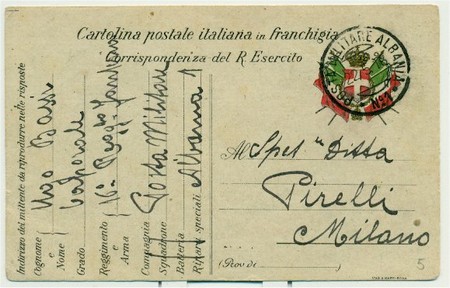 Cartolina postale italiana in franchigia
Corrispondenza del R. Esercito
POSTA MILITARE ALBANIA
No 1
Indirizzo del mittente da riprodurre nelle risposte
Cognome e Nome
Ugo
Grado
Caporale
Reggimento e Arma
Compagnia
Squadrone
Batteria
Posta Militare
Riparti speciali
Albania 1
Al Spet. Ditta
Pirelli
Milano
(Prov. di
5